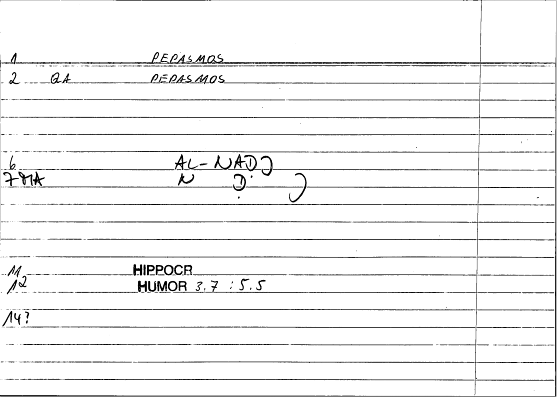 1 PEPASMOS
2 QA PEPASMOS
6 AL-NAḌJ
7 MA N Ḍ J
11 HIPPOCR
12 HUMOR 3.7 : 5.5
14?